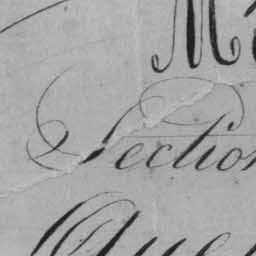 M
Section
Que